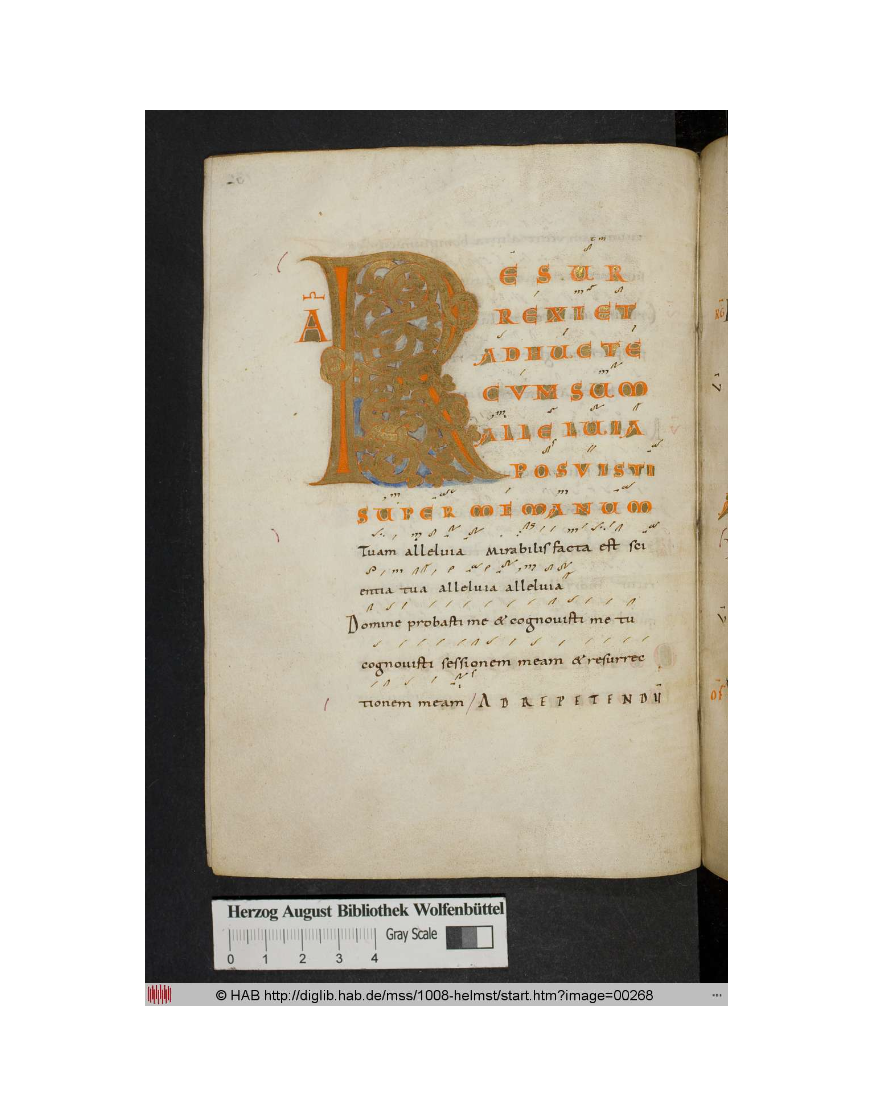 A
R E S U R
REXI ET
ADHUC TE
CVM SUM
ALLELUIA
POSVISTI
SUPER ME MANUM
Tuam alleluia Mirabilis facta est sci
entia tua alleluia alleluia
Domine probasti me & cognovisti me tu
cognovisti sessionem meam & resurrec
tionem meam / A D R E P E T E N D Ū
Herzog August Bibliothek Wolfenbüttel
Gray Scale
0 1 2 3 4
© HAB http://diglib.hab.de/mss/1008-helmst/start.htm?image=00268